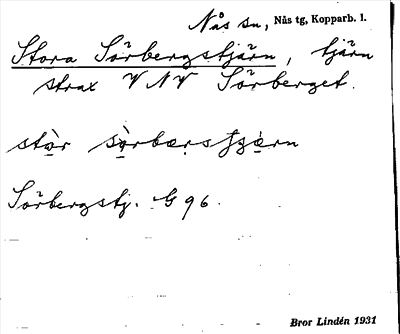 Nås sn, Nås tg, Kopparb. l.
Stora Sörbergstjärn, tjärn
strax VNV Sörberget.
Sörbergstj. G 96.
Bror Lindén 1931